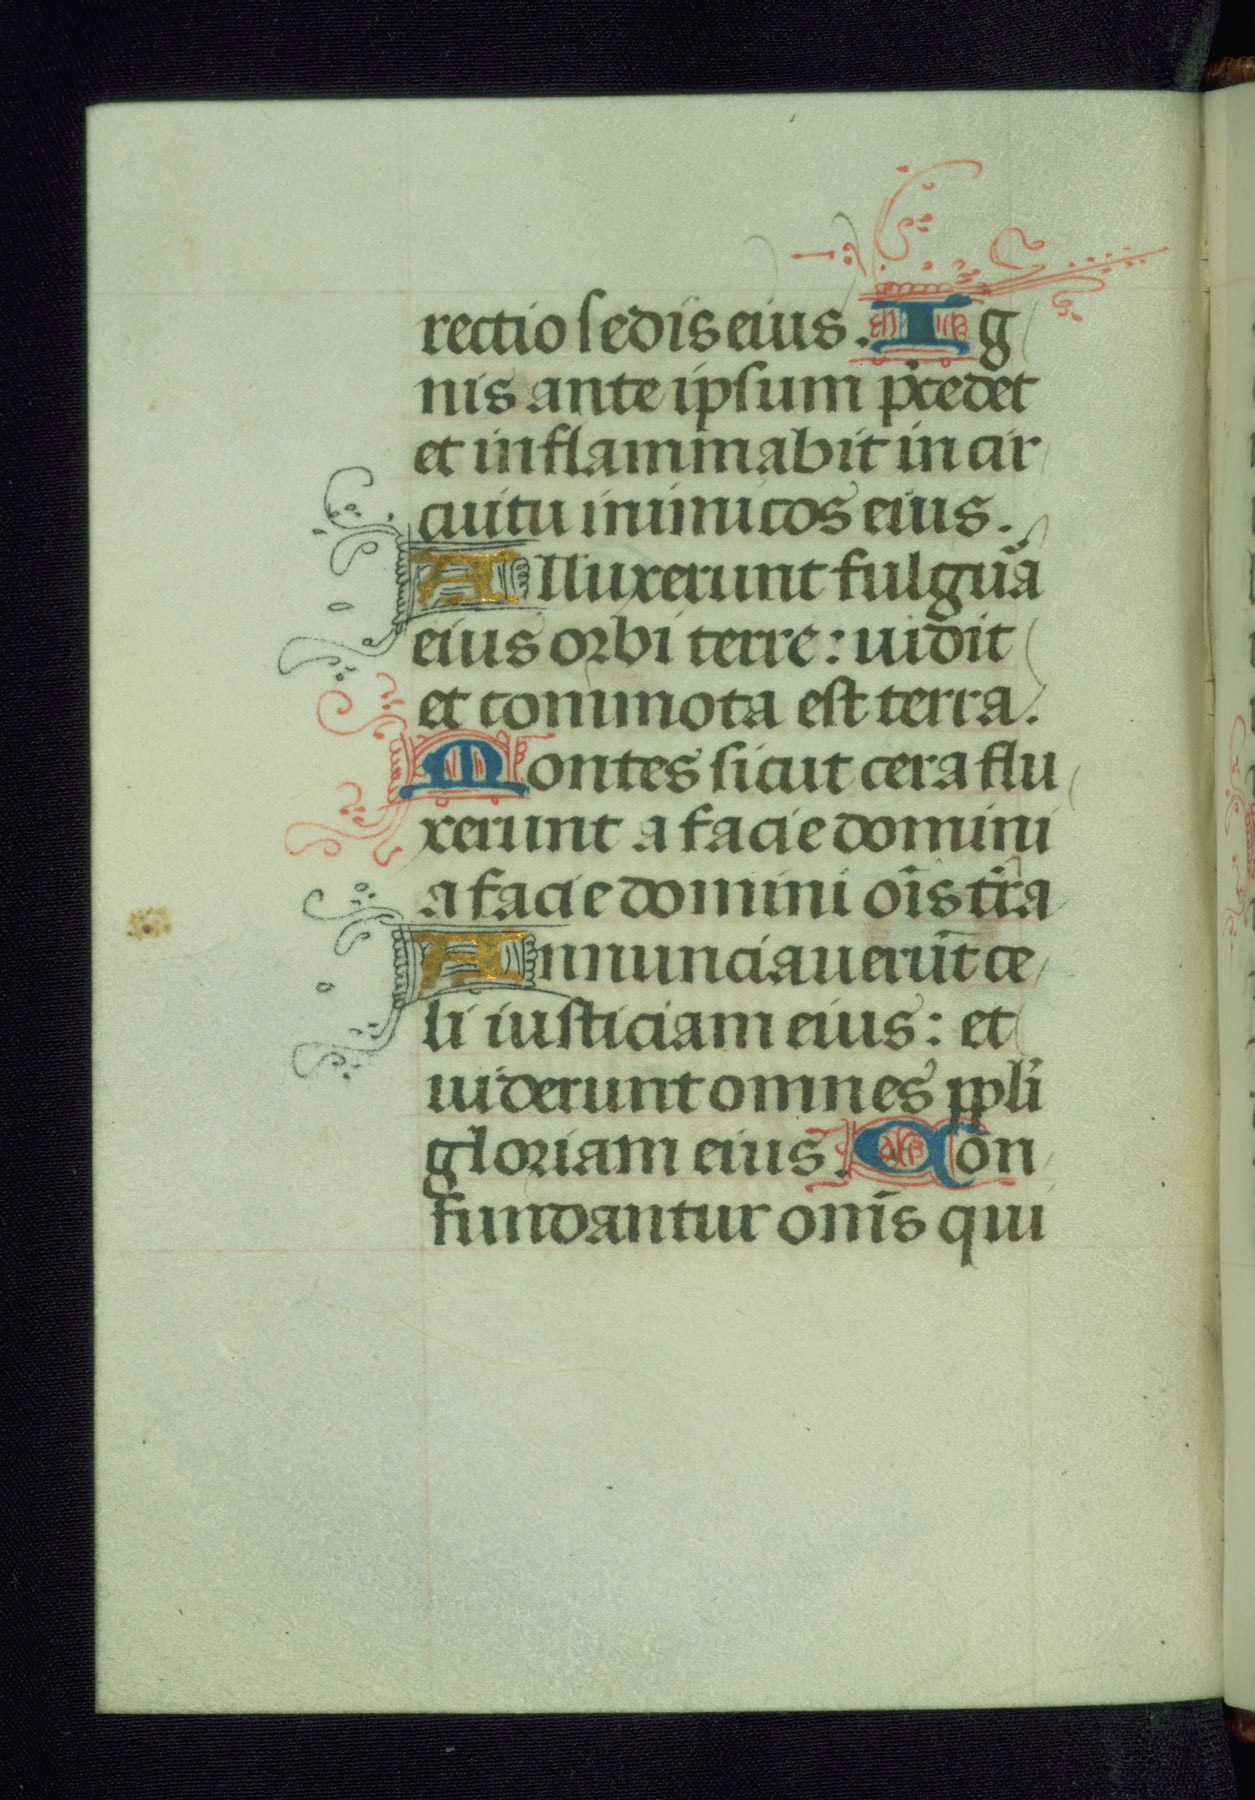 rectio sedis eius. Ig
nis ante ipsum p̄cedet
et inflammabit in cir
cuitu inimicos eius.
Alluxerunt fulgura̅
eius orbi terre: uidit
et commota est terra.
Montes sicut cera flu
xerunt a facie domini
a facie domini oīs tr̄a
Annunciauerūt ce
li iusticiam eius: et
uiderunt omnes ppl̄i
gloriam eius. Con
fundantur omīs qui